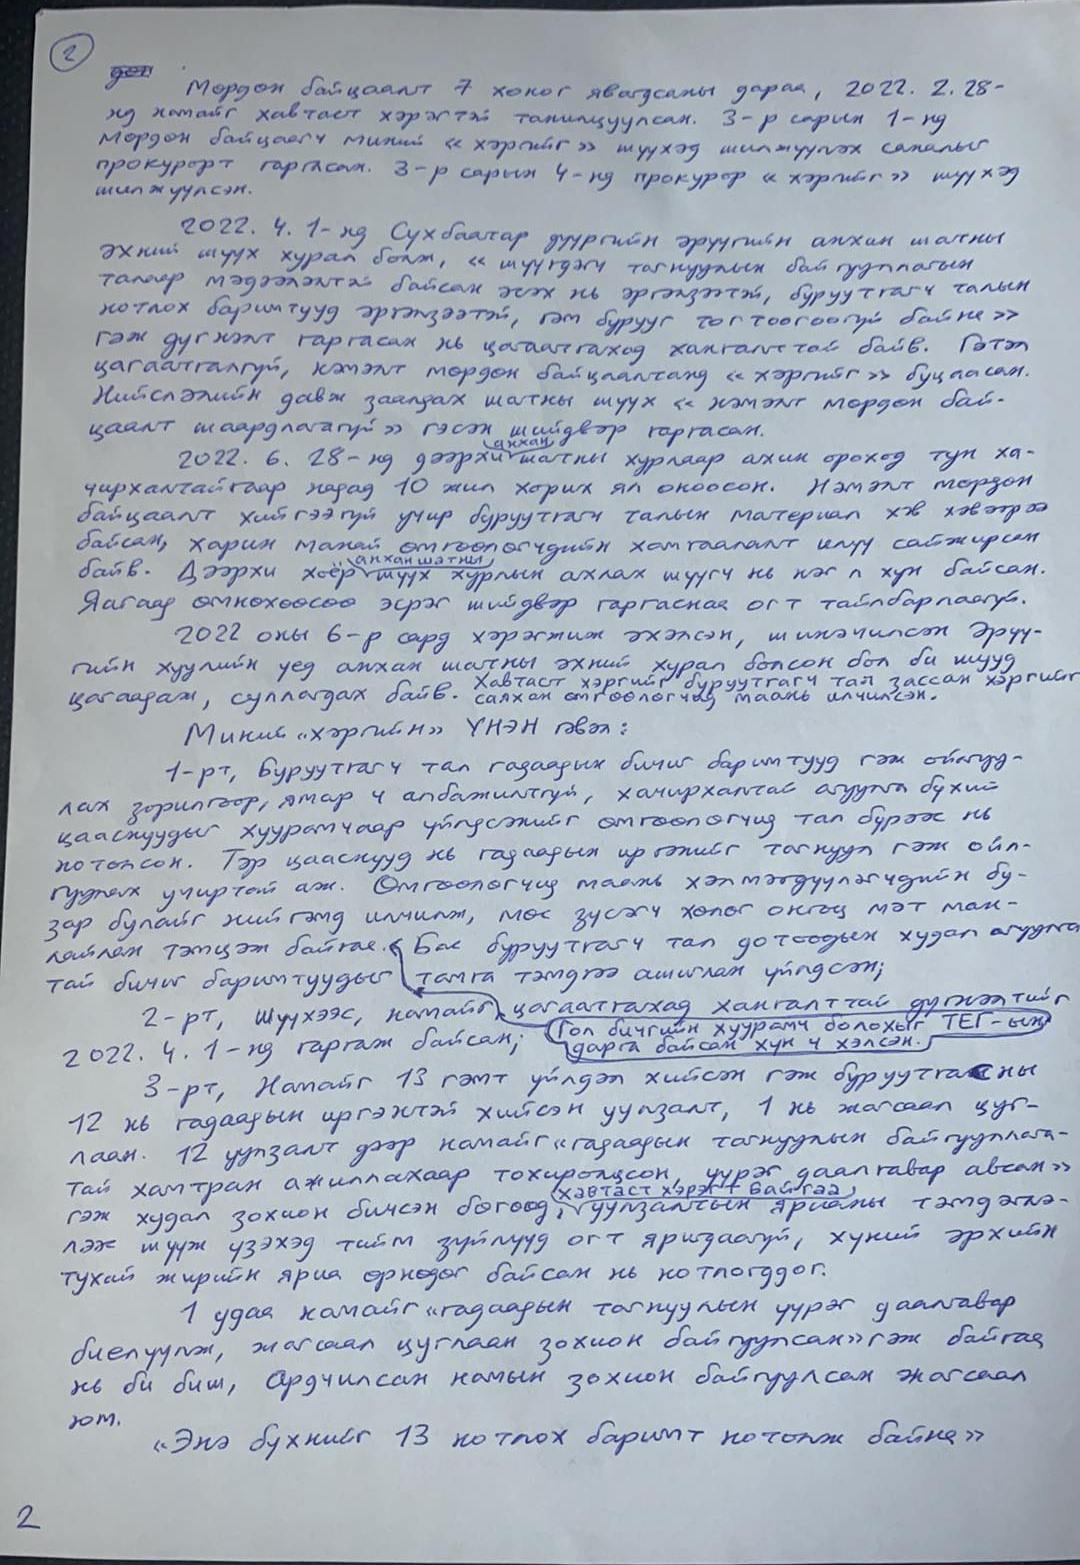 2
Мөрдөн байцаалт 7 хоног явагдсаны дараа, 2022. 2. 28-
нд намайг хавтаст хэрэгтэй танилцуулсан. 3-р сарын 1-нд
Мөрдөн байцаагч миний «хэргийг» шүүхэд шилжүүлэх саналыг
прокурорт гаргасан. 3-р сарын 4-нд прокурор «хэргийг» шүүхэд
шилжүүлсэн.
2022. 4. 1-нд Сүхбаатар дүүргийн эрүүгийн анхан шатны
эхний шүүх хурал болж, «шүүгдэгч тагнуулын байгууллагын
талаар мэдээлэлтэй байсан эсэх нь эргэлзээтэй, буруутгагч талын
нотлох баримтууд эргэлзээтэй, гэм бурууг тогтоогоогүй байна»
гэж дүгнэлт гаргасан нь цагаатгахад хангалттай байв. Гэтэл
цагаатгалгүй, нэмэлт мөрдөн байцаалтанд «хэргийг» буцаасан.
Нийслэлийн давж заалдах шатны шүүх «нэмэлт мөрдөн бай-
цаалт шаардлагагүй» гэсэн шийдвэр гаргасан.
2022. 6. 28-нд дээрхи анхан шатны хурлаар ахин ороход тун ха-
чирхалтайгаар надад 10 жил хорих ял оноосон. Нэмэлт мөрдөн
байцаалт хийгээгүй учир буруутгагч талын материал хэв хэвээрээ
байсан, харин манай өмгөөлөгчдийн хамгаалалт илүү сайжирсан
байв. Дээрхи хоёр анхан шатны шүүх хурлын ахлах шүүгч нь нэг л хүн байсан.
Яагаад өмнөхөөсөө эсрэг шийдвэр гаргаснаа огт тайлбарлаагүй.
2022 оны 6-р сард хэрэгжиж эхэлсэн, шинэчилсэн Эрүү-
гийн хуулийн үед анхан шатны эхний хурал болсон бол би шууд
цагаадаж, суллагдах байв. Хавтаст хэргийг буруутгагч тал зассан хэргийг
салхан өмгөөлөгчид маань илчилсэн.
Миний «хэргийн» ҮНЭН гэвэл:
1-рт, Буруутгагч тал гадаадын бичиг баримтууд гэж ойлгуу-
лах зорилгоор, ямар ч албажилтгүй, хачирхалтай агуулга бүхий
цааснуудыг хуурамчаар үйлдсэнийг өмгөөлөгчид тал бүрээс нь
нотолсон. Тэр цааснууд нь гадаадын иргэнийг тагнуул гэж ойл-
гуулах учиртай аж. Өмгөөлөгчид маань хэлмэгдүүлэгчдийн бу-
зар булайг нийгэмд илчилж, мөс зүсэгч хөлөг онгоц мэт ман-
лайлан тэмцэж байгаа. Бас буруутгагч тал дотоодын худал агуулга
тай бичиг баримтуудыг тамга тэмдгээ ашиглан үйлдсэн;
2-рт, Шүүхээс, намайг цагаатгахад хангалттай дүгнэлтийг
2022. 4. 1-нд гаргаж байсан; Гол бичгийн хуурамч болохыг ТЕГ-ын
дарга байсан хүн ч хэлсэн.
3-рт, Намайг 13 гэмт үйлдэл хийсэн гэж буруутгасны
12 нь гадаадын иргэнтэй хийсэн уулзалт, 1 нь жагсаал цуг-
лаан. 12 уулзалт дээр намайг «гадаадын тагнуулын байгууллага-
тай хамтран ажиллахаар тохиролцсон, үүрэг даалгавар авсан»
гэж худал зохион бичсэн бөгөөд, хавтаст хэрэгт байгаа уулзалтын ярианы тэмдэглэ-
лэж шүүж үзэхэд тийм зүйлүүд огт яригдаагүй, хүний эрхийн
тухай жирийн яриа өрнөдөг байсан нь нотлогддог.
1 удаа намайг «гадаадын тагнуулын үүрэг даалгавар
биелүүлж, жагсаал цуглаан зохион байгуулсан» гэж байгаа
нь би биш, Ардчилсан намын зохион байгуулсан жагсаал
юм.
«Энэ бүхнийг 13 нотлох баримт нотолж байна»
2